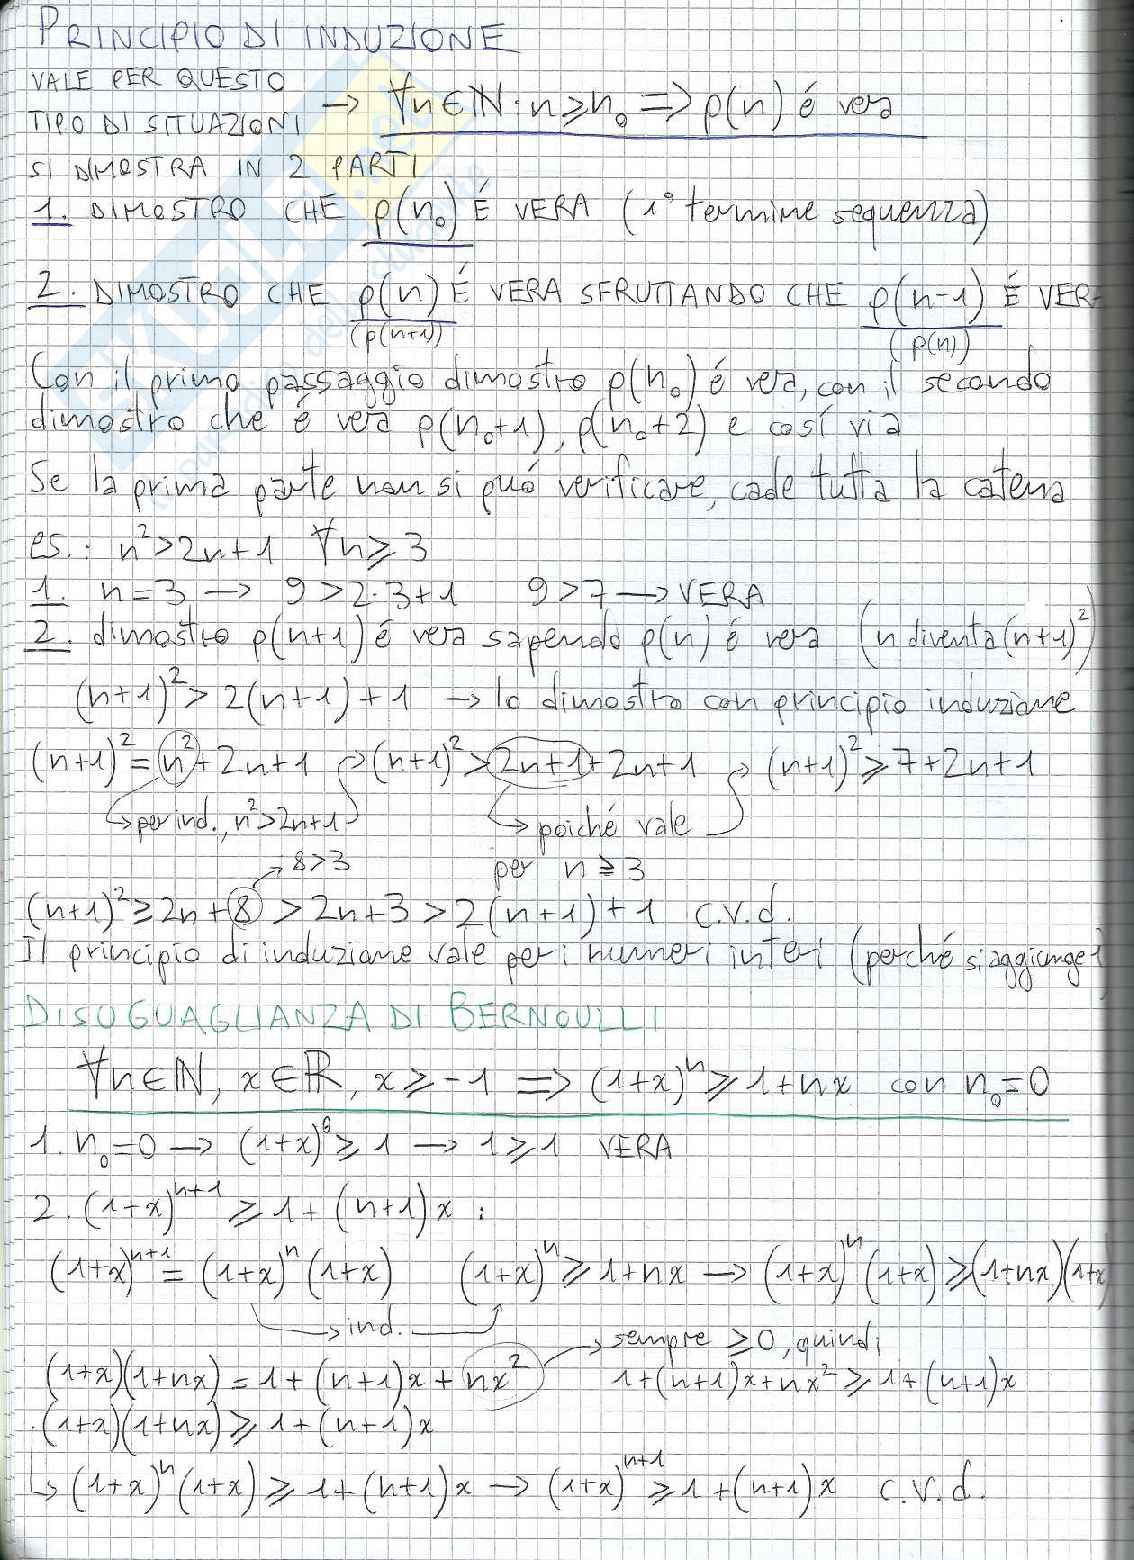 PRINCIPIO DI INDUZIONE
VALE PER QUESTO
TIPO DI SITUAZIONI → ∀n∈ℕ: n≥n₀ => p(n) é vera
SI DIMOSTRA IN 2 PARTI
1. DIMOSTRO CHE p(n₀) É VERA (1° termine sequenza)
2. DIMOSTRO CHE p(n) É VERA SFRUTTANDO CHE p(n-1) É VER
(p(n+1)) (p(n))
Con il primo passaggio dimostro p(n₀) é vera, con il secondo
dimostro che é vera p(n₀+1), p(n₀+2) e cosí via
Se la prima parte non si puó verificare, cade tutta la catena
es.: n²>2n+1 ∀n≥3
1. n=3 → 9>2·3+1 9>7 → VERA
2. dimostro p(n+1) é vera sapendo p(n) é vera (n diventa (n+1)²)
(n+1)²>2(n+1)+1 → lo dimostro con principio induzione
(n+1)²=n²+2n+1 → (n+1)²>2n+1+2n+1 → (n+1)²≥7+2n+1
→ per ind., n²>2n+1 → poiché vale
per n≥3
→ 8>3
(n+1)²≥2n+8>2n+3>2(n+1)+1 c.v.d.
Il principio di induzione vale per i numeri interi (perché si aggiunge 1
DISUGUAGLIANZA DI BERNOULLI
∀n∈ℕ, x∈ℝ, x≥-1 => (1+x)ⁿ≥1+nx con n₀=0
1. n₀=0 → (1+x)⁰≥1 → 1≥1 VERA
2. (1+x)ⁿ⁺¹≥1+(n+1)x :
(1+x)ⁿ⁺¹=(1+x)ⁿ(1+x) (1+x)ⁿ≥1+nx → (1+x)ⁿ(1+x)≥(1+nx)(1+x
→ ind.
→ sempre ≥0, quindi
(1+x)(1+nx)=1+(n+1)x+nx² 1+(n+1)x+nx²≥1+(n+1)x
(1+x)(1+nx)≥1+(n+1)x
↳ (1+x)ⁿ(1+x)≥1+(n+1)x → (1+x)ⁿ⁺¹≥1+(n+1)x c.v.d.